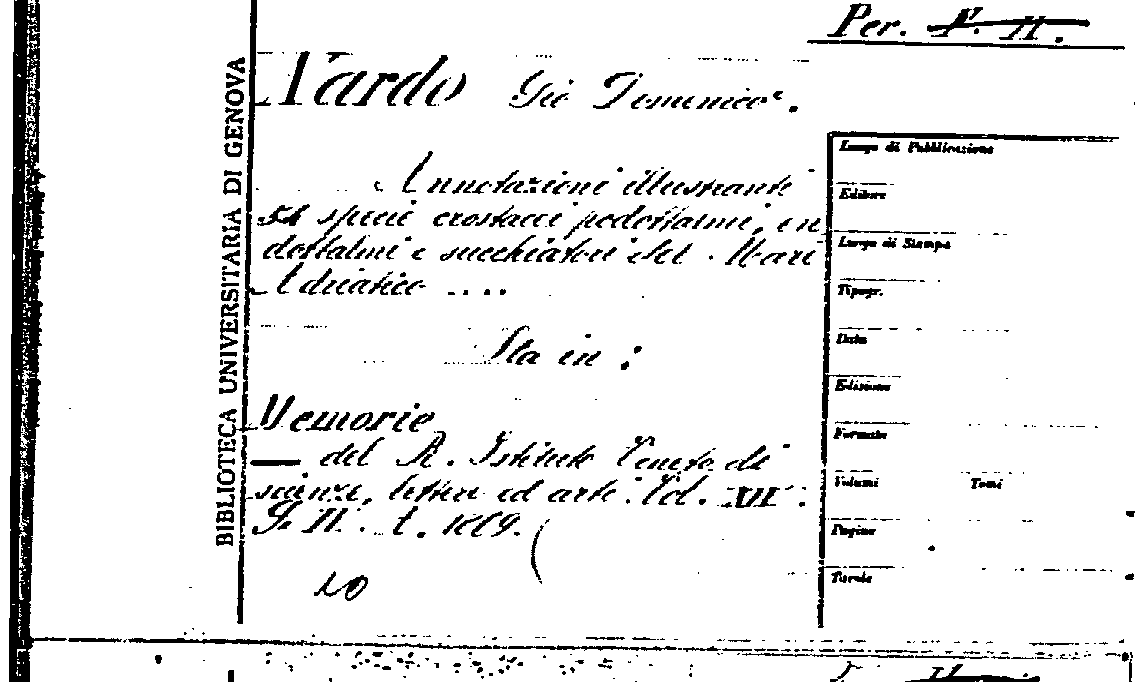 Per. F. II.
BIBLIOTECA UNIVERSITARIA DI GENOVA
Nardo Gio Domenico.
Annotazioni illustranti
54 specie crostacei podottalmi, en
dottalmi e succhiatori del Mare
Adriatico ....
Sta in :
Memorie
— del R. Istituto Veneto di
scienze, lettere ed arti. Vol. XIV.
P. II. t. 1869.
20
Luogo di Pubblicazione
Editore
Luogo di Stampa
Tipogr.
Data
Edizione
Formato
Volumi Tomi
Pagine
Tavole